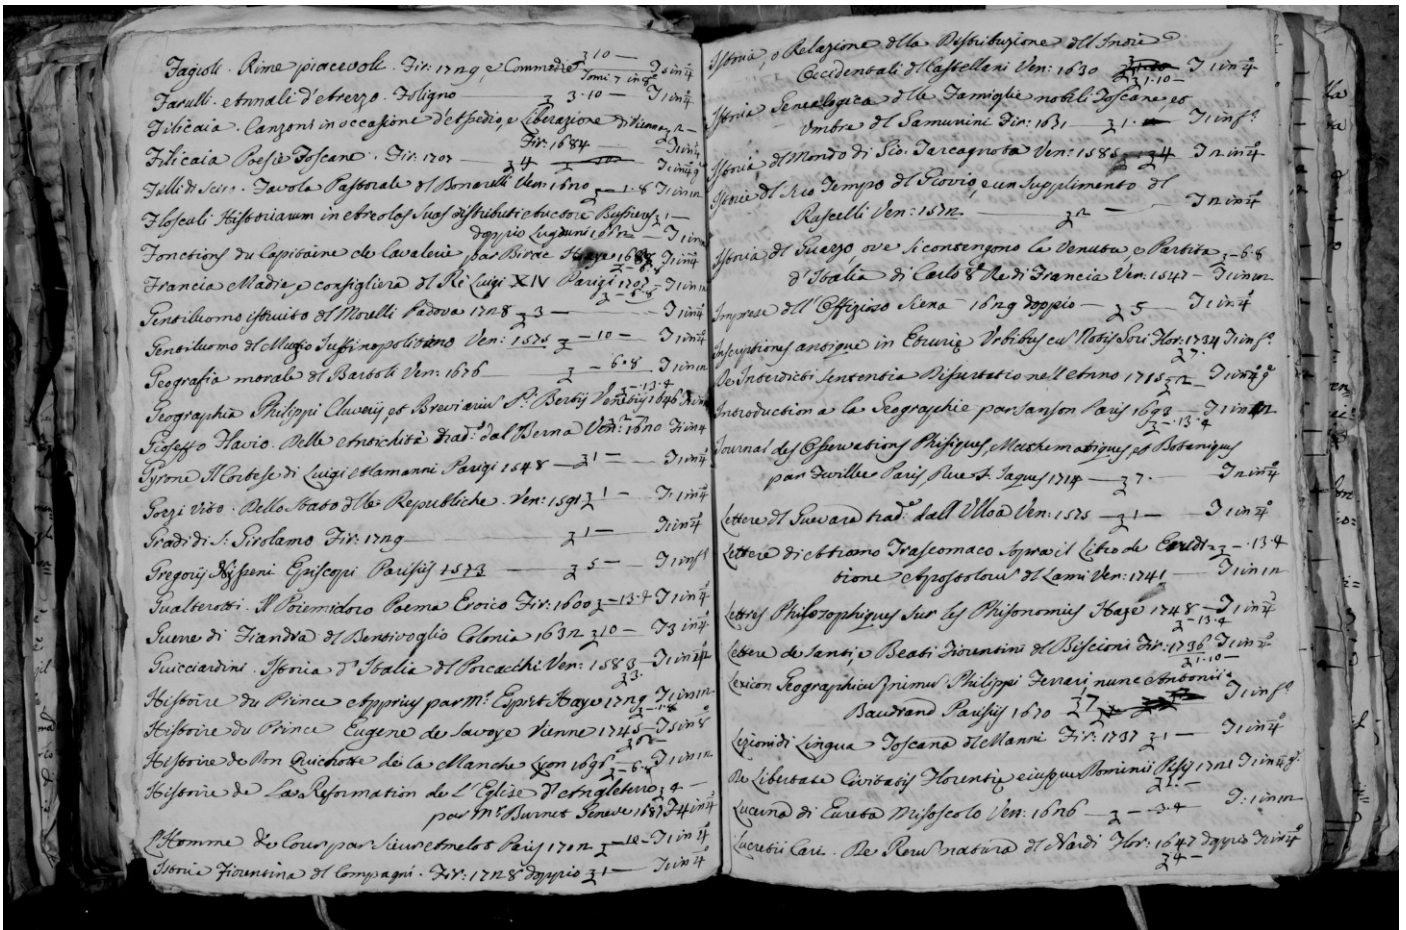 Fagiuoli. Rime piacevoli. Fir: 1729, e Commedie Tomi 7 in 8º ʒ 10 — T 6 in 4º
Farulli. Annali d'Arezzo. Foligno ʒ 3.10 — T 1 in 4º
Filicaia. Canzoni in occasione d'Assedio, e Liberazione di Vienna ʒ 2 —
Fir: 1684 — T 1 in 4º
Filicaia Poesie Toscane. Fir: 1707 — ʒ 4 T 1 in 4º
Filli di Sciro. Favola Pastorale del Bonarelli Ven: 1620 ʒ — 1.8 T 1 in 12
Flosculi Historiarum in Areolas Suas distributi Auctore Bussieres ʒ 1 —
doppio Lugduni 1662 — T 1 in 12
Fonctions du Capitaine de Cavalerie par Birac Haye 1688 T 1 in 4º
ʒ — 6.8
Francia Madre, e consigliera del Re Luigi XIV Parigi 1707 — T 1 in 12
ʒ — 6.8
Gentiluomo istruito del Morelli Padova 1728 ʒ 3 — T 1 in 4º
Gentiluomo del Muzio Justinopolitano Ven: 1575 ʒ — 10 — T 1 in 4º
Geografia morale del Bartoli Ven: 1676 ʒ — 6.8 T 1 in 12
ʒ — 13.4
Geographia Philippi Cluverij, et Breviarium P. Bertij Venetijs 1646 T 1 in
Gioseffo Flavio. Delle Antichità Trad: dal Berna Ven: 1620 T 1 in 4
Gyrone Il Cortese di Luigi Alamanni Parigi 1548 — ʒ 1 — T 1 in 4º
Gozzi Vito. Dello Stato delle Republiche. Ven: 1591 ʒ 1 — T 1 in 4º
Gradi di S: Girolamo Fir: 1729 — ʒ 1 — T 1 in 4º
Gregorij Nysseni Episcopi Parisijs 1573 — ʒ 5 — T 1 in fº
Gualterotti. Il Polemidoro Poema Eroico Fir: 1600 ʒ — 13.4 T 1 in 4º
Guerre di Fiandra del Bentivoglio Colonia 1632 ʒ 10 — T 3 in 4º
Guicciardini. Istoria d'Italia del Porcacchi Ven: 1583 — T 1 in 4º
ʒ 3.
Histoire du Prince Apprius par Mr. Esprit Haye 1729 T 1 in 12
ʒ — 1.8
Histoire du Prince Eugene de Savoye Vienne 1745 — T 5 in 8º
Histoire de Don Quichotte de la Manche Lyon 1696 — T 1 in 12
ʒ — 6.8
Histoire de La Reformation de L'Eglise d'Angleterre ʒ 4 —
par Mr. Burnet Geneve 1687 T 4 in 4º
L'Homme de Cour par Sieur Amelot Paris 1702 ʒ — 10 — T 1 in 4º
Istoria Fiorentina del Compagni. Fir: 1728 doppio ʒ 1 — T 1 in 4º
Istoria, o Relazione della Distribuzione dell'Indie
Occidentali del Castellani Ven: 1630 ʒ 1.10 — T 1 in 4º
Istoria Genealogica delle Famiglie nobili Toscane, et
Umbre del Gamurrini Fir: 1631 — ʒ 1. T 1 in fº
Istoria del Mondo di Gio. Tarcagnota Ven: 1585 ʒ 4 T 2 in 4º
Istorie del Suo Tempo del Giovio, e un Supplimento del
Ruscelli Ven: 1572 — ʒ 2 — T 2 in 4º
Istoria del Guazzo, ove si contengono la Venuta, e Partita ʒ — 6.8
d'Italia di Carlo 8º Re di Francia Ven: 1547 — T 1 in 12
Imprese dell'Offizioso Siena 1629 doppio — ʒ 5 — T 1 in 4º
Inscriptiones antique in Etrurię Urbibus cu Notis Gori Flor: 1734 T 1 in fº
ʒ 7.
De Interdicti Sententia Dissertatio nell'Anno 1715 ʒ 2 — T 1 in 4º
Introduction a la Geographie par Sanson Paris 1693 — T 1 in 12
ʒ — 13.4
Journal des Observations Phisiques, Mathematiques, et Botaniques
par Feuillee Paris Rue S. Jaques 1714 — ʒ 7. T 2 in 4º
Lettere del Guevara trad: dall'Ulloa Ven: 1575 — ʒ 1 — T 1 in 4º
Lettere di Atromo Trascomaco sopra il Libro de Erudi= ʒ — .13.4
tione Apostolorum del Lami Ven: 1741 — T 1 in 12
Lettres Philosophiques sur les Phisonomies Haye 1748 — T 1 in 4º
ʒ — 13.4
Lettere de Santi, e Beati Fiorentini del Biscioni Fir: 1736 T 1 in 4º
ʒ 1.10 —
Lexicon Geographicum primus Philippi Ferrari nunc Antonii
Baudrand Parisijs 1670 ʒ 7 T 1 in fº
Lezioni di Lingua Toscana del Manni Fir: 1737 ʒ 1 — T 1 in 4º
De Libertate Civitatis Florentię ejusque Dominii Pisis 1721 T 1 in 4º
ʒ 2. —
Lucerna di Eureta Misoscolo Ven: 1626 — ʒ — 3.4 T: 1 in 12
Lucretii Cari. De Rerum natura del Nardi Flor: 1647 doppio T 1 in 4º
ʒ 4 —